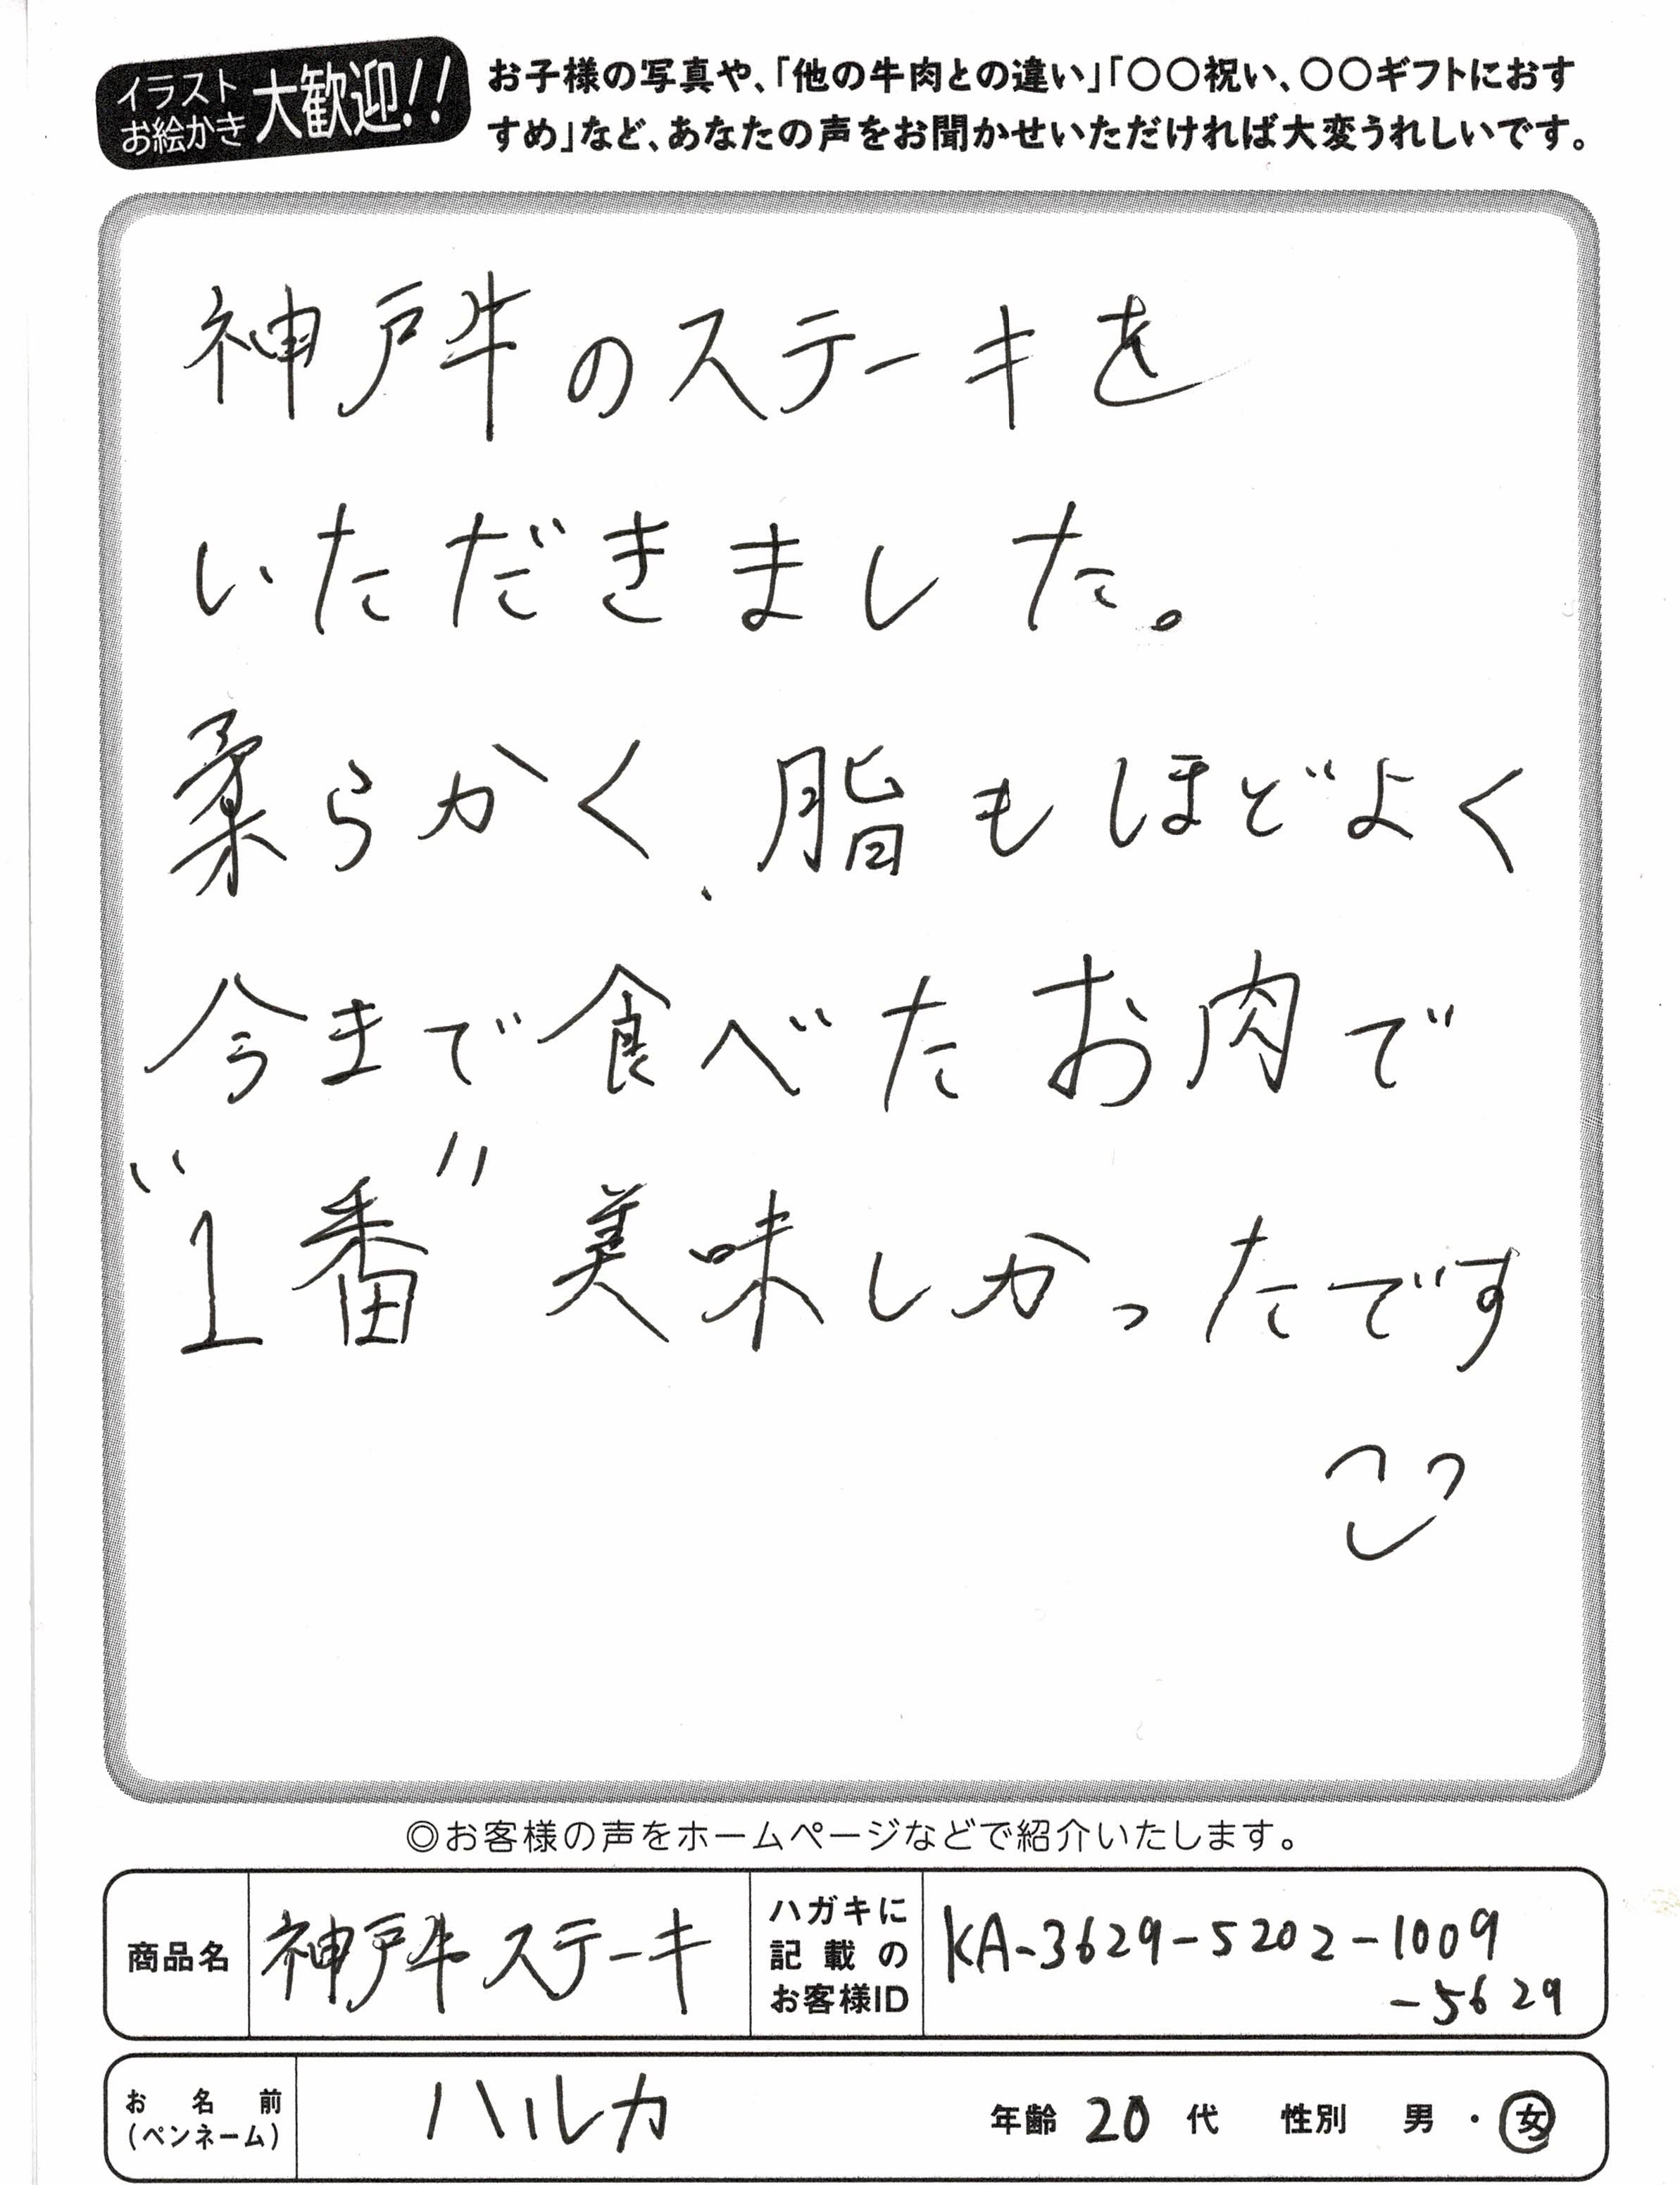 イラスト
お絵かき
大歓迎!!
お子様の写真や、「他の牛肉との違い」「〇〇祝い、〇〇ギフトにおす
すめ」など、あなたの声をお聞かせいただければ大変うれしいです。
神戸牛のステーキを
いただきました。
柔らかく、脂もほどよく
今まで食べたお肉で
"1番"美味しかったです
◎お客様の声をホームページなどで紹介いたします。
商品名
神戸牛ステーキ
ハガキに
記載の
お客様ID
KA-3629-5202-1009
-5629
お名前
(ペンネーム)
ハルカ
年齢 20 代 性別 男・女